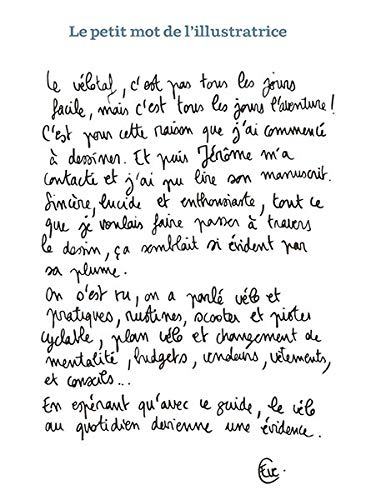 Le petit mot de l'illustratrice
Le vélotaf, c'est pas tous les jours
facile, mais c'est tous les jours l'aventure !
C'est pour cette raison que j'ai commencé
à dessiner. Et puis Jérôme m'a
contacté et j'ai pu lire son manuscrit.
Sincère, lucide et enthousiaste, tout ce
que je voulais faire passer à travers
le dessin, ça semblait si évident par
sa plume.
On s'est vu, on a parlé vélo et
pratiques, rustines, scooter et pistes
cyclable, plan vélo et changement de
mentalité, budgets, vendeurs, vêtements,
et conseils...
En espérant qu'avec ce guide, le vélo
au quotidien devienne une évidence.